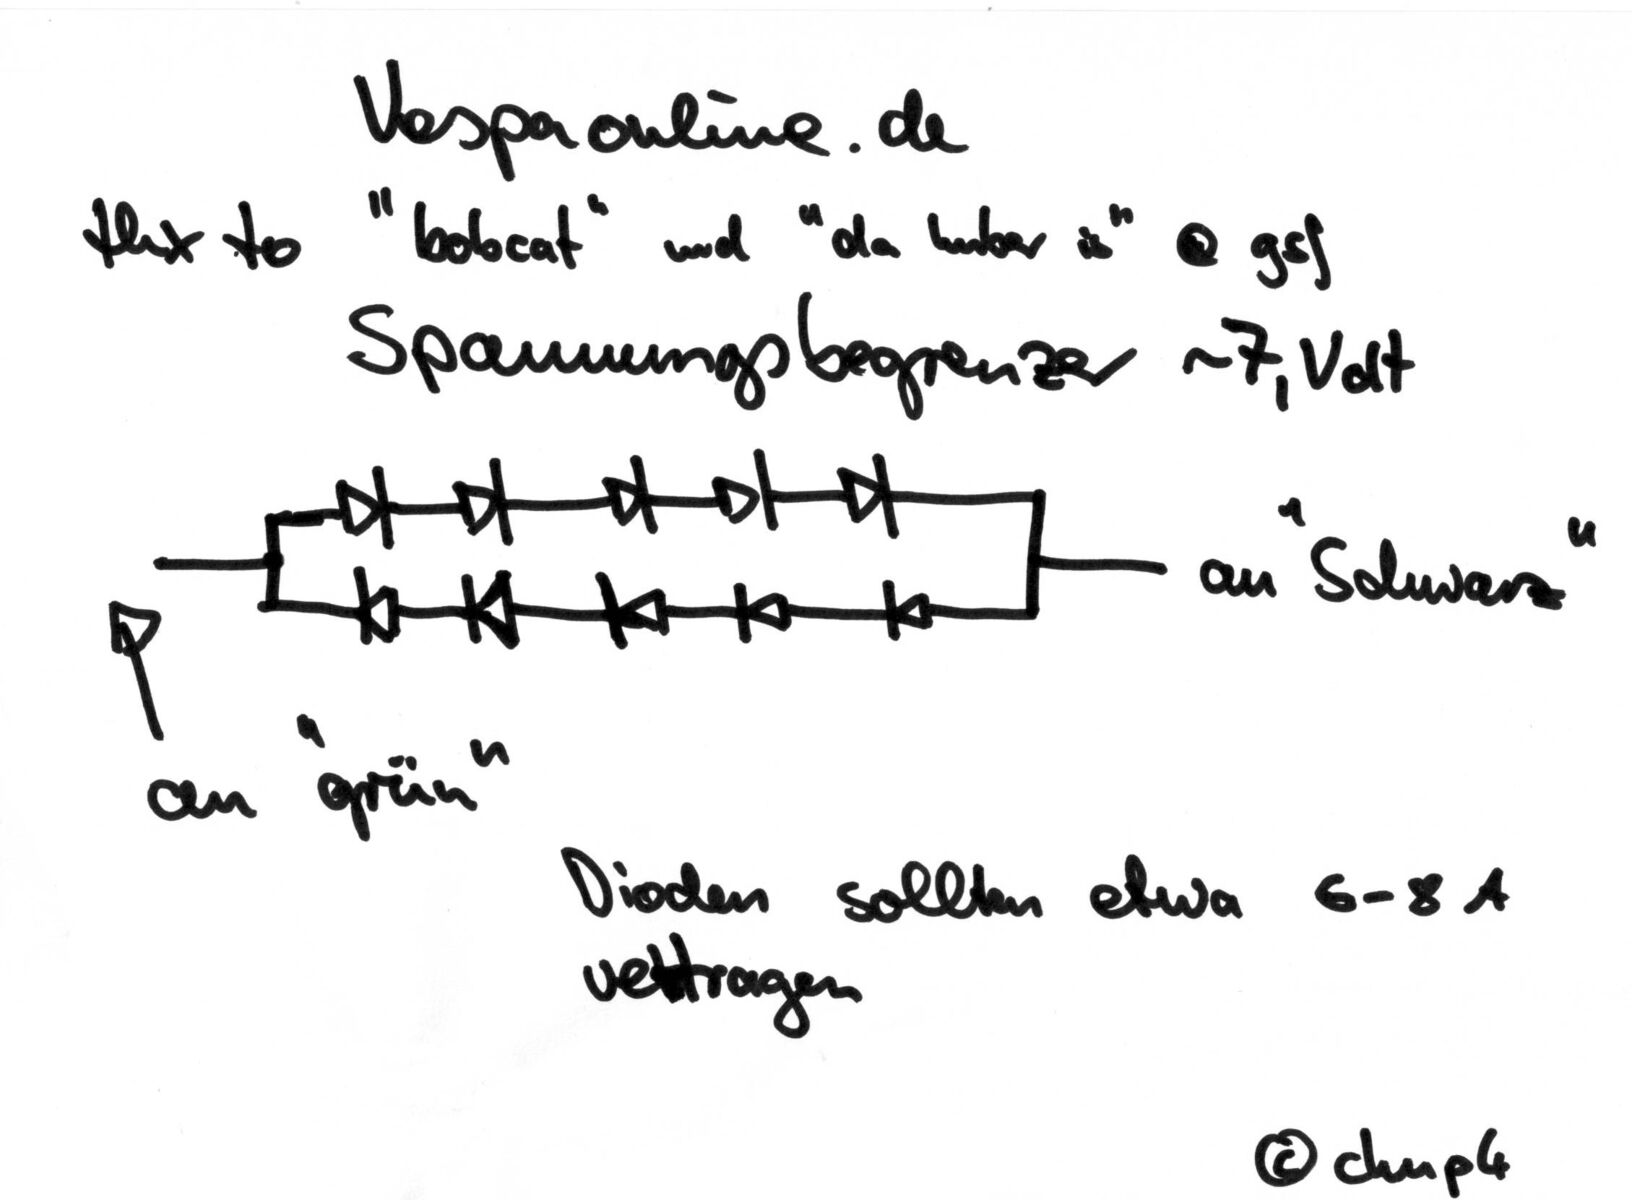 Vespaonline.de
thx to "bobcat" und "da huber is" @ gsf
Spannungsbegrenzer ~7, Volt
an "Schwarz"
an "grün"
Dioden sollten etwa 6-8 A
vertragen
©